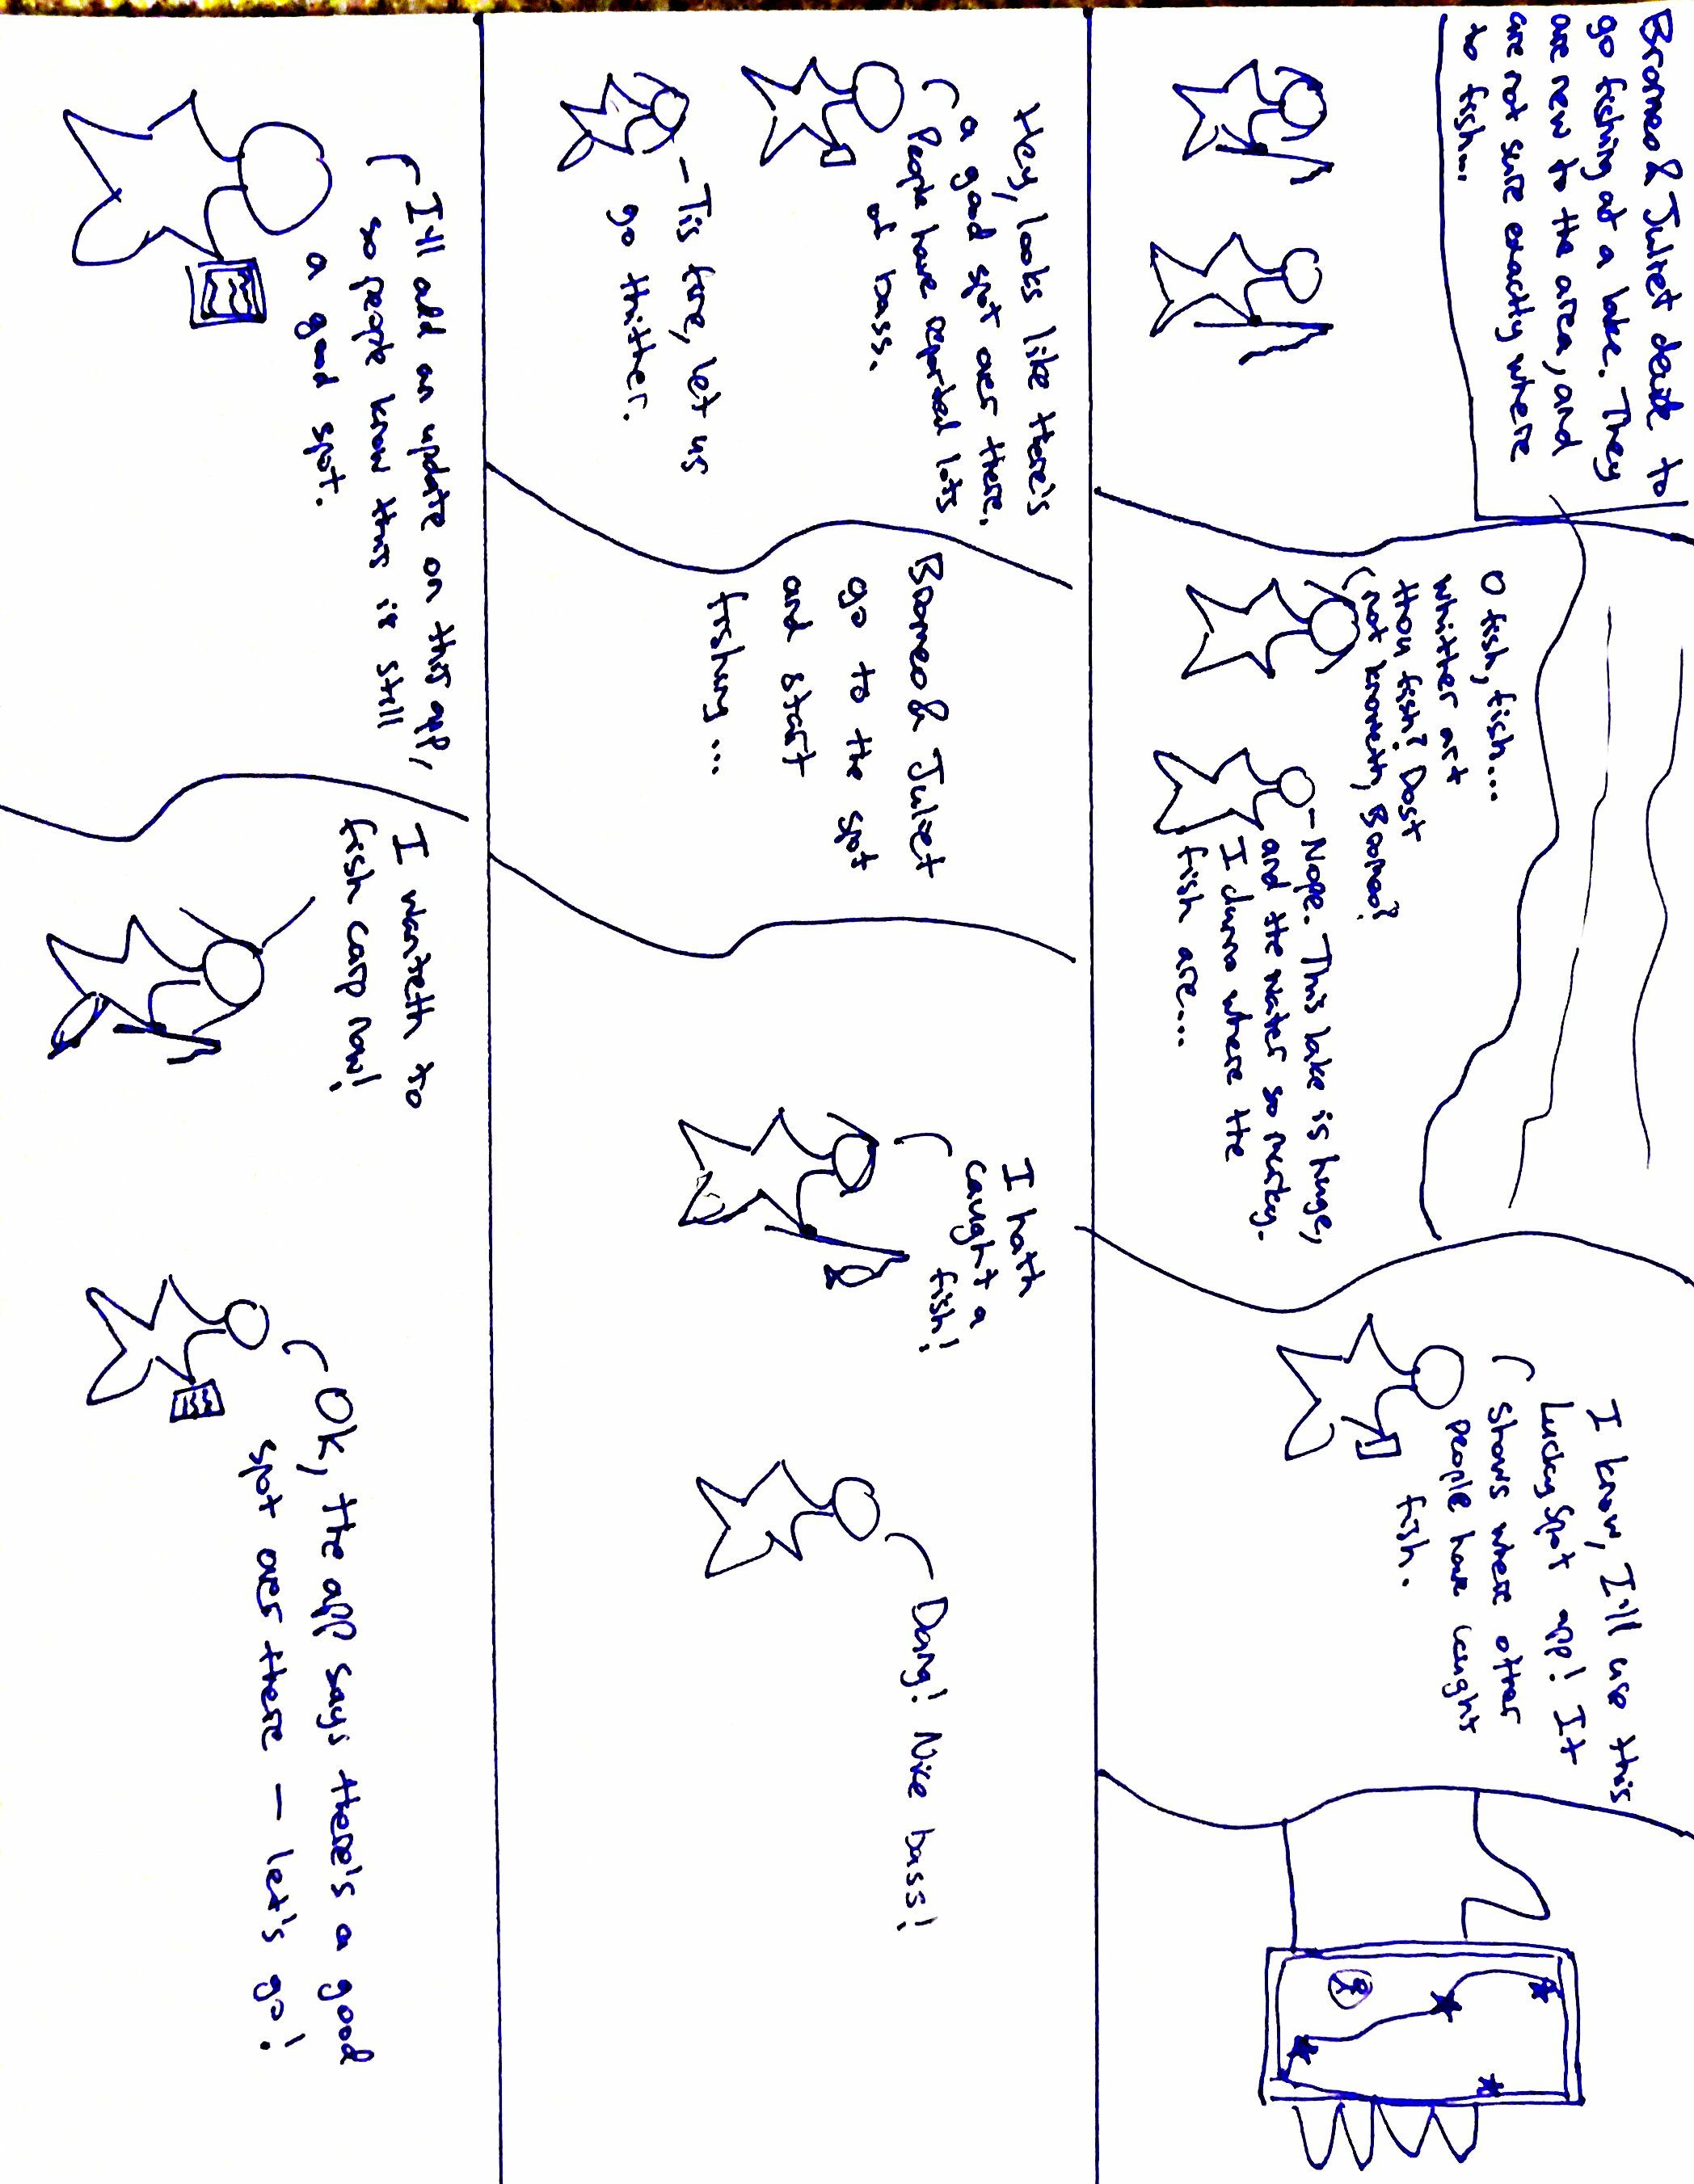 Bromeo & Juliet decide to
go fishing at a lake. They
are new to the area, and
are not sure exactly where
to fish...
O fish, fish...
whither art
thou fish? Dost
not knoweth, Bromeo?
Nope. This lake is huge,
and the water so murky.
I dunno where the
fish are...
I know, I'll use this
Lucky Spot app! It
shows where other
people have caught
fish.
Hey, looks like there's
a good spot over there.
People have reported lots
of bass.
Tis fine, let us
go thither.
Bromeo & Juliet
go to the spot
and start
fishing...
I hath
caught a
fish!
Dang! Nice bass!
I'll add an update on this app,
so people know this is still
a good spot.
I wanteth to
fish carp now!
Ok, the app says there's a good
spot over there — let's go!